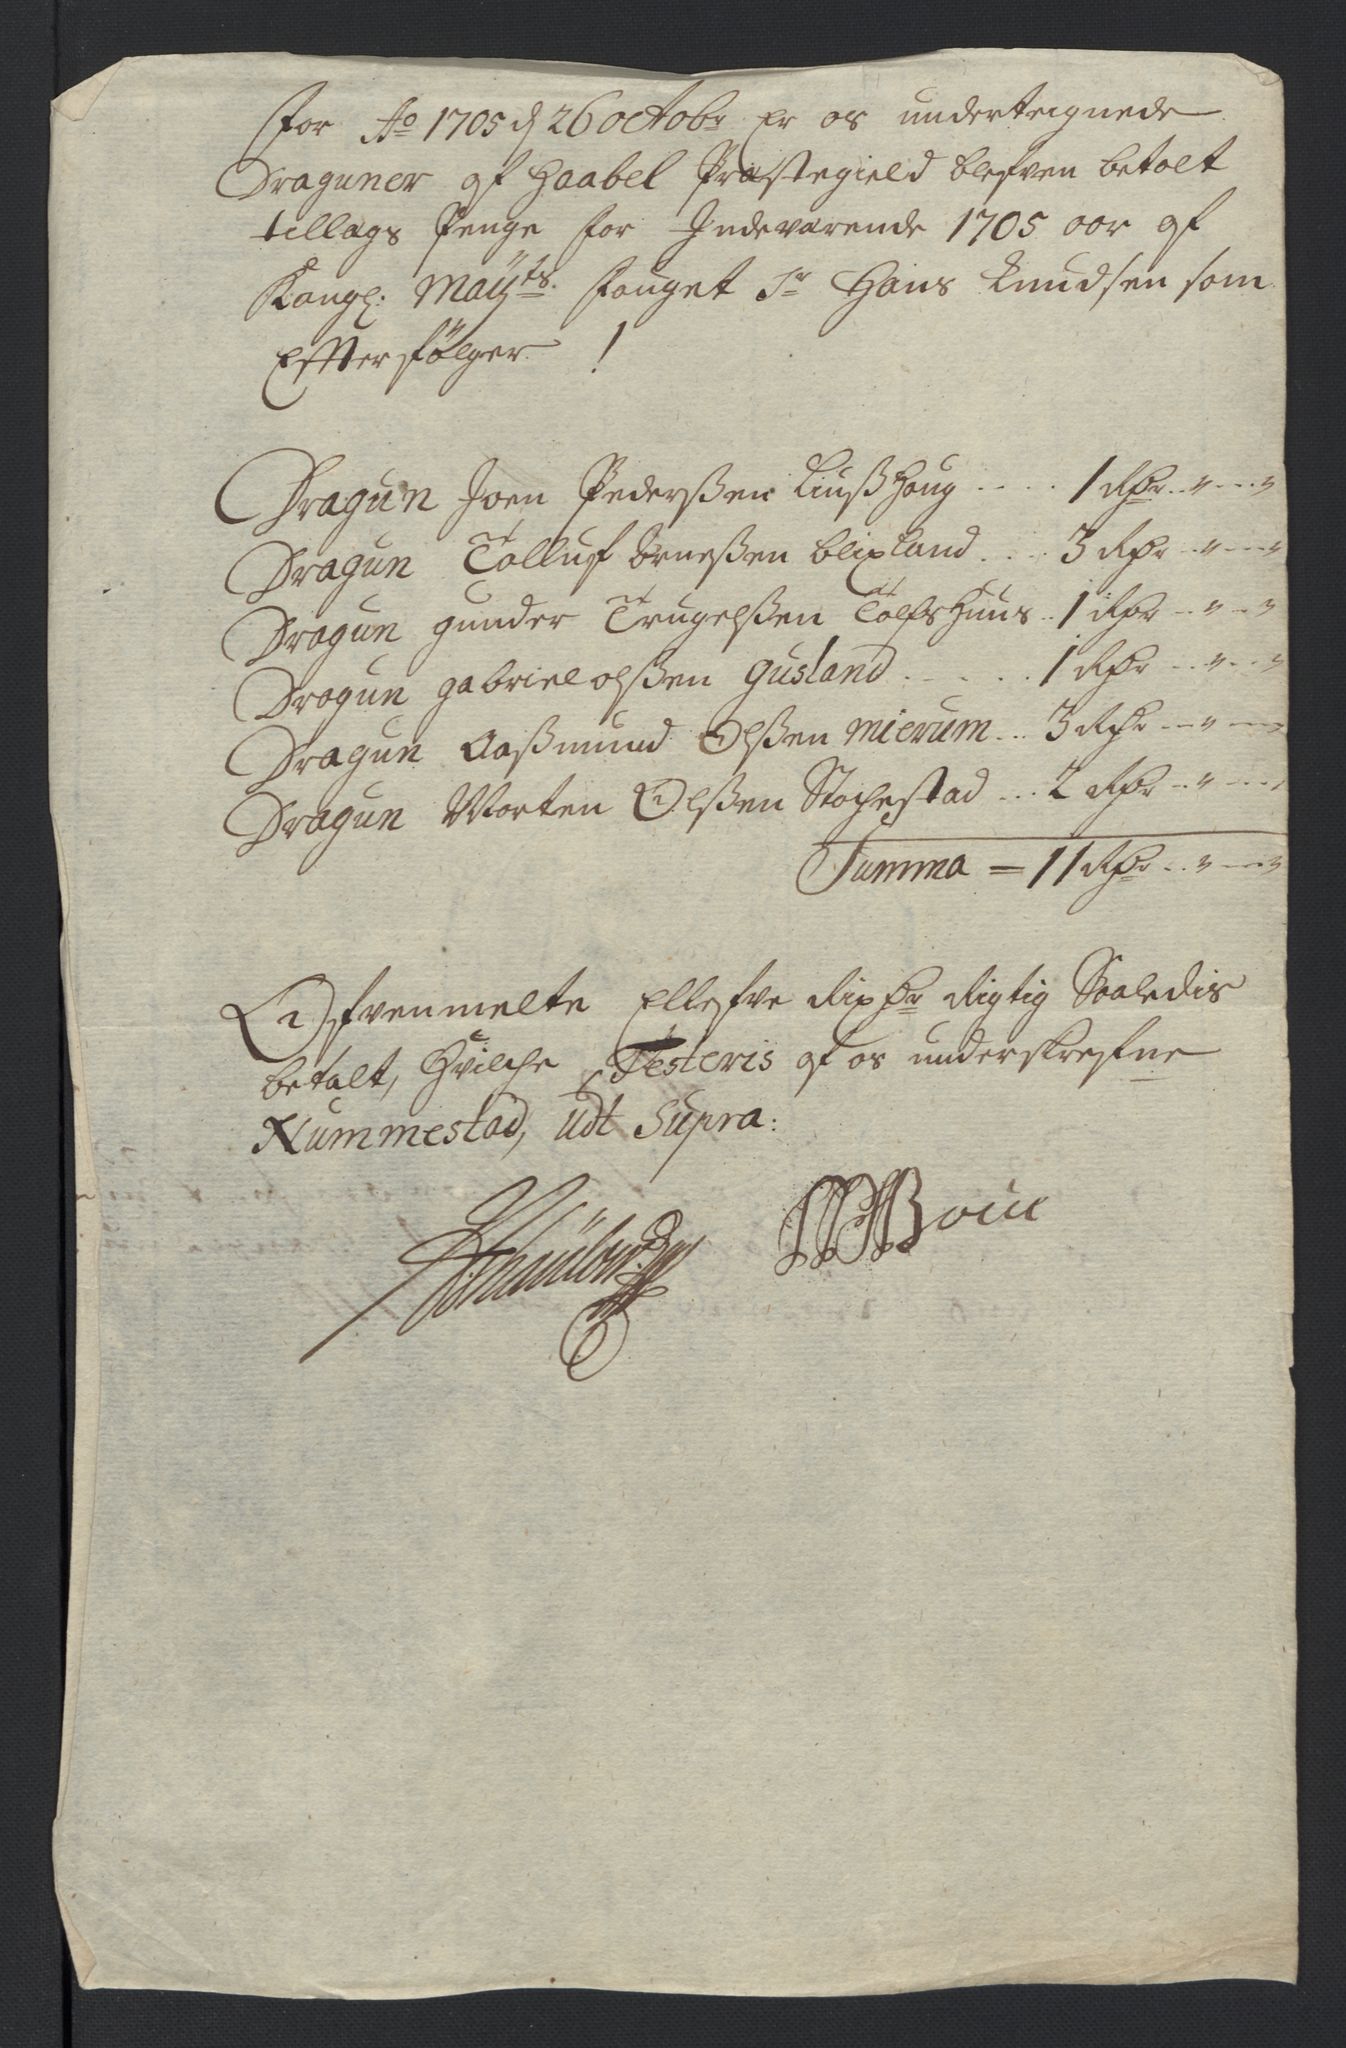 for Ao 1705 d 26 octobr Er os underteignede
Draguner af Haabel Præstegield blefven betalt
tillags Penge for Indeværende 1705 aar af
Kongl: Mayts. fouget Sr Hans Knudsen som
Effterfølger /
Dragun Joen Pederßen Liußhoug .... 1 Rdr .. " ... "
Dragun Tolluf örneßen blixland ... 3 Rdr .. " ... "
Dragun gunder Trugelßen Tolfshuus .. 1 Rdr .. " .. "
Dragun gabriel olßen gusland ..... 1 Rdr .. " .. "
Dragun Aaßmund Olßen mierum ... 3 Rdr .. " ... "
Dragun Morten Olßen Stochestad ... 2 Rdr .. " ...
Summa = 11 Rdr .. " ... "
Ofvenmelte Ellefve Rixdr Rigtig Saaledis
betalt, Hvilche Testeris af os underskrefne
Nummestad, Udt Supra:
Boiie